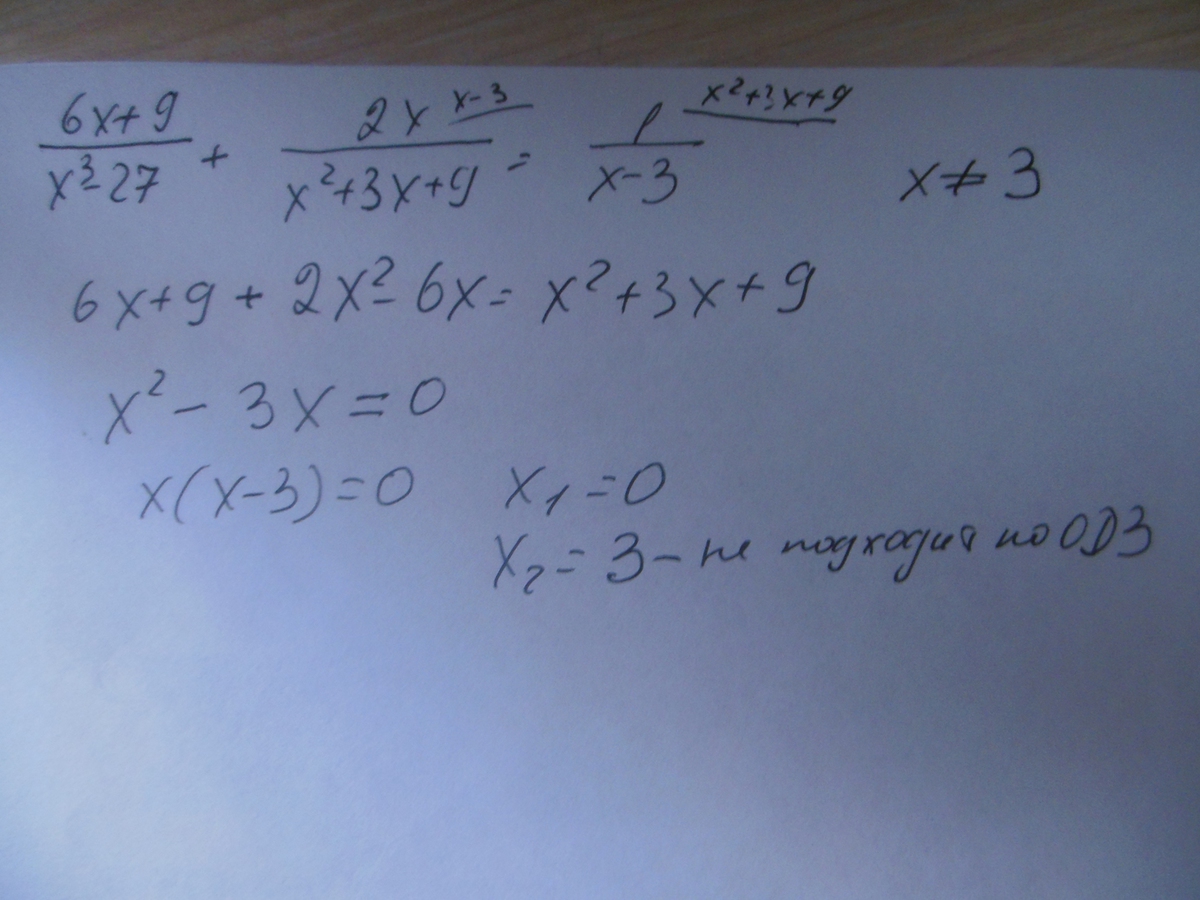 (6x+9)/(x³-27) + 2x/(x²+3x+9) (x-3) = 1/(x-3) (x²+3x+9) x≠3
6x+9+2x²-6x=x²+3x+9
x²-3x=0
x(x-3)=0 x₁=0
x₂=3-не подходит по ОДЗ